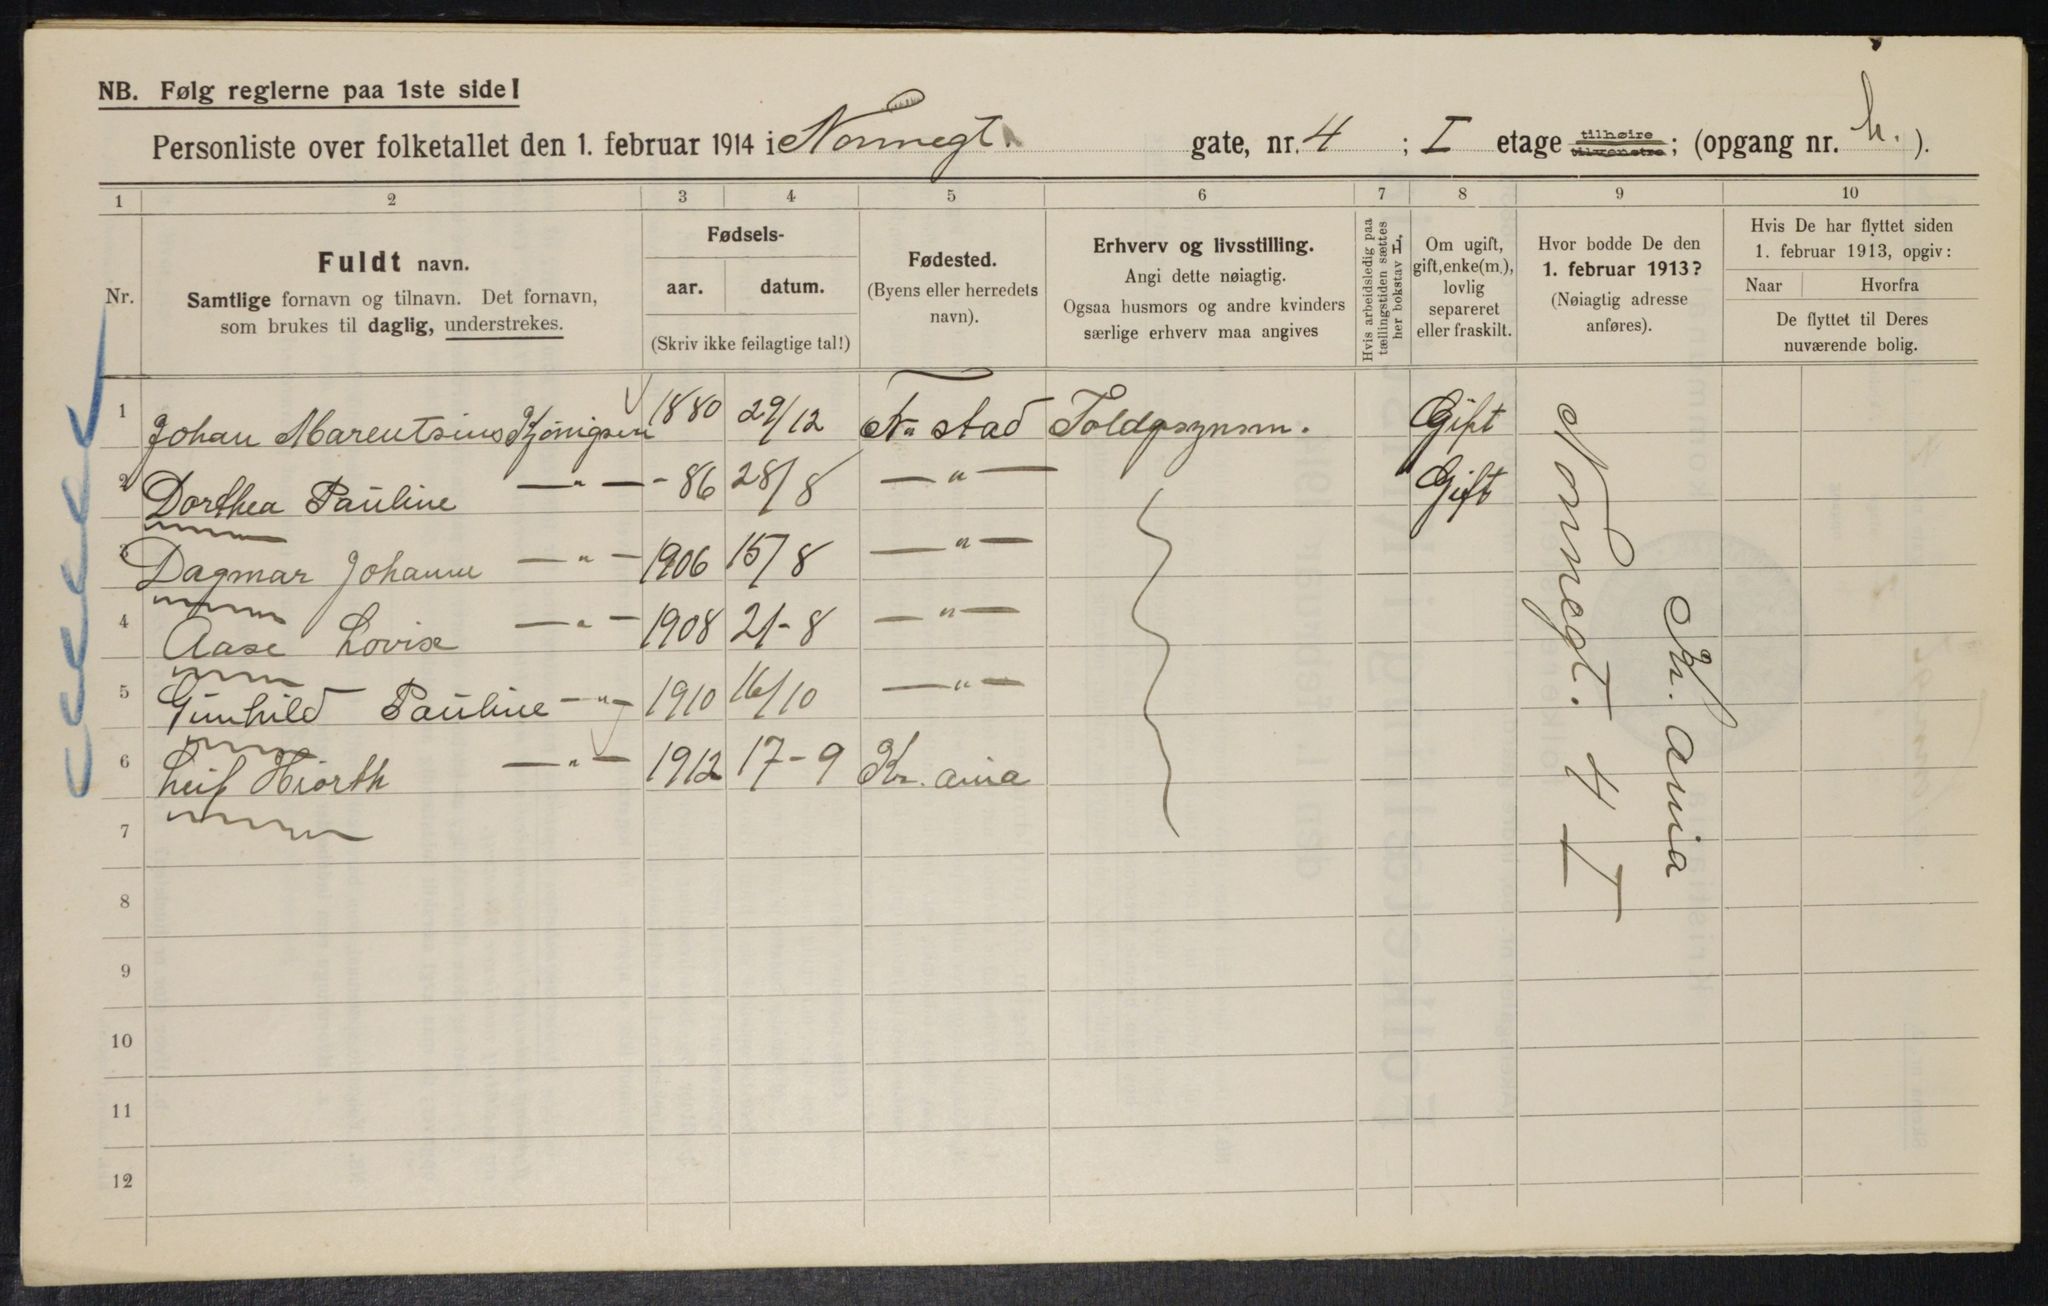 NB. Følg reglerne paa 1ste side!
Personliste over folketallet den 1. februar 1914 i Normegt. gate, nr. 4 ; I etage tilhøire tilvenstre ; (opgang nr. h. ).
1 2 3 4 5 6 7 8 9 10
Nr.
Fuldt navn.
Samtlige fornavn og tilnavn. Det fornavn,
som brukes til daglig, understrekes.
Fødsels-
aar. datum.
(Skriv ikke feilagtige tal!)
Fødested.
(Byens eller herredets
navn).
Erhverv og livsstilling.
Angi dette nøiagtig.
Ogsaa husmors og andre kvinders
særlige erhverv maa angives
Hvis arbeidsledig paa
tællingstiden sættes
her bokstav L.
Om ugift,
gift, enke(m.),
lovlig
separeret
eller fraskilt.
Hvor bodde De den
1. februar 1913?
(Nøiagtig adresse
anføres).
Hvis De har flyttet siden
1. februar 1913, opgiv:
Naar Hvorfra
De flyttet til Deres
nuværende bolig.
1 Johan Marentsius Kjönigsen 1880 29/12 Fr stad Toldopsynsm. Gift
2 Dorthea Pauline —„— - 86 28/8 —„— Gift
3 Dagmar Johanne —„— 1906 15/8 —„—
4 Aase Lovise —„— 1908 21-8 —„—
5 Gunhild Pauline —„— 1910 16/10 —„—
6 Leif Hiorth —„— 1912 17-9 Kr. ania
Normegt. 4 I
Kr. ania
7
8
9
10
11
12